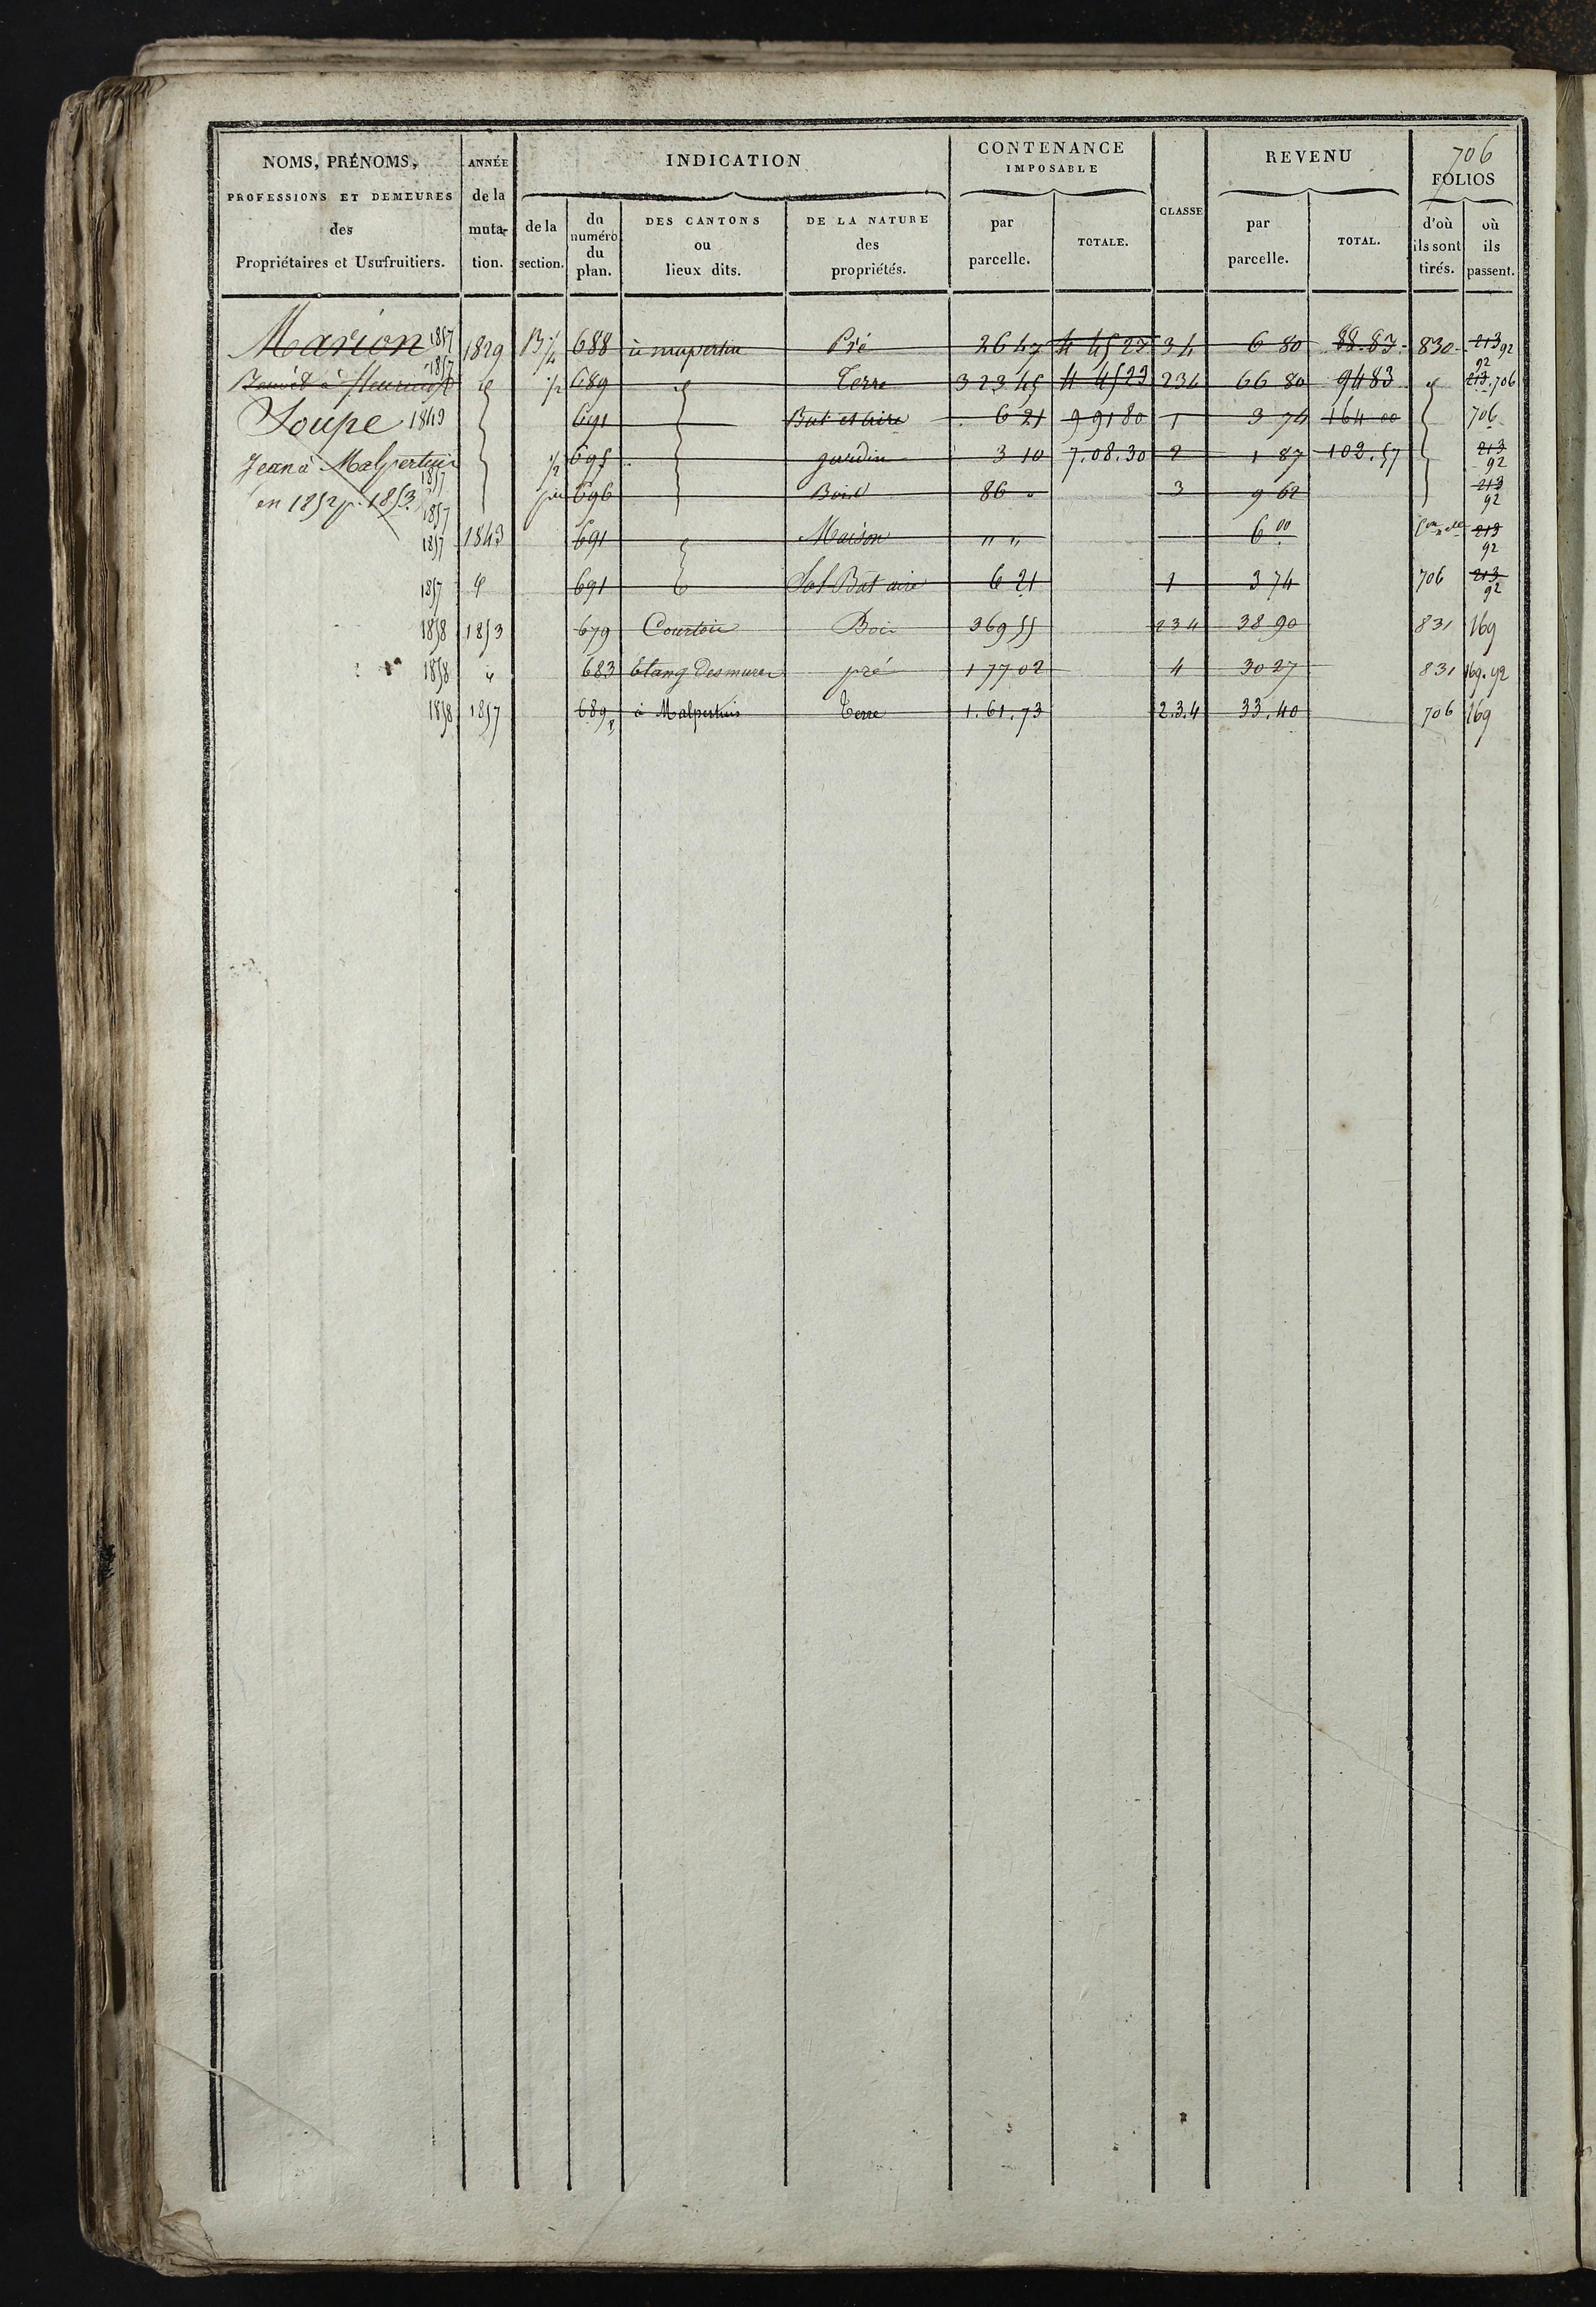 NOMS, PRÉNOMS,
PROFESSIONS ET DEMEURES
des
Propriétaires et Usufruitiers.
ANNÉE
de la
muta-
tion.
INDICATION
de la
section.
du
numéro
du
plan.
DES CANTONS
ou
lieux dits.
DE LA NATURE
des
propriétés.
CONTENANCE
IMPOSABLE
par
parcelle.
TOTALE.
CLASSE
REVENU
par
parcelle.
TOTAL.
706
FOLIOS
d'où
ils sont
tirés.
où
ils
passent.
Marion 1857 1829 B 688 Pré 26 47 4 45 23 34 6 80 88.83 830 213 92
1857 689 Terre 3 23 45 4 45 23 234 66 80 94 83 213 92 706
Soupe 1843 691 Bat et aire 6 21 9 91 80 1 3 74 164 00 706
Jean à Malpertuis 1/2 695 jardin 3 10 7.08.30 2 1 87 102.57 213 92
en 1852 p. 1853 1857 696 Bois 86 3 9 62 213 92
1857 1843 691 Maison " " 6 00 213 92
1857 691 Sol Bât aire 6 21 1 3 74 706 213 92
1858 1853 679 Bois 3 69 55 234 38 90 831 169
1858 683 Etang des mures pré 1 77 02 4 30 27 831 169.92
1858 1857 689 à Malpertuis Terre 1.61.73 2.3.4 33.40 706 169